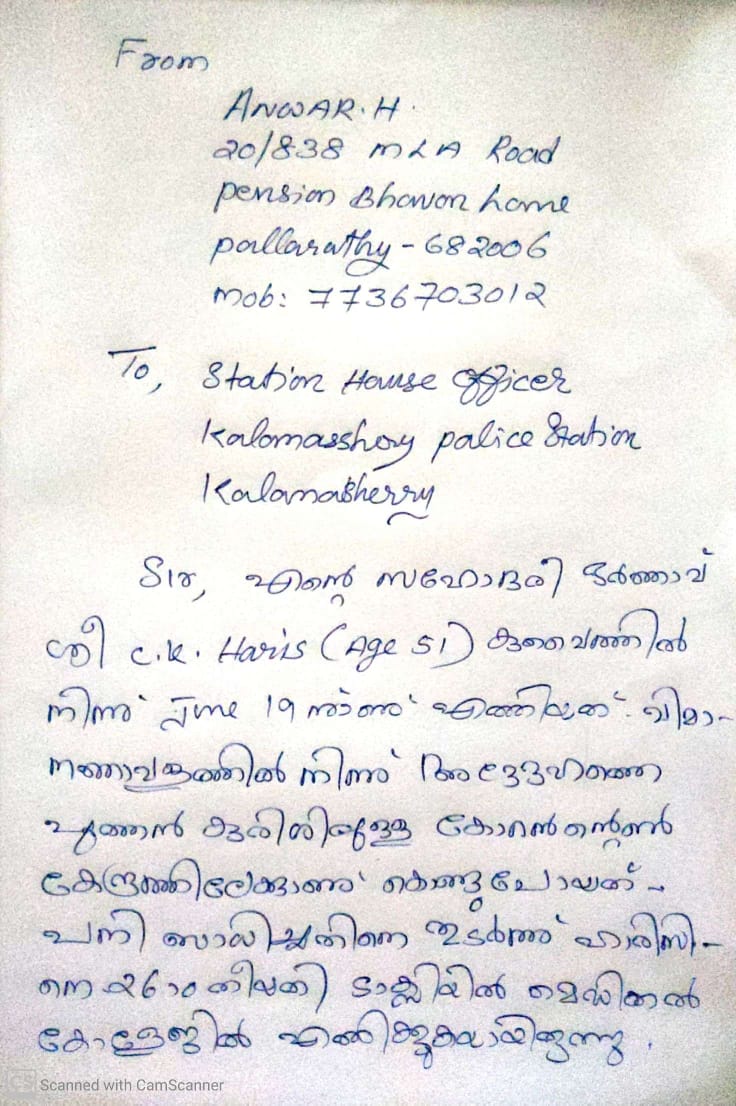 From
ANWAR.H.
20/838 MLA Road
pension Bhavan home
pallarathy - 682006
mob: 7736703012
To, Station House officer
Kalamassherry police Station
Kalamasherry
Sir, എന്റെ സഹോദരി ഭർത്താവ്
ശ്രീ C.K. Haris (Age 51) കുവൈത്തിൽ
നിന്ന് June 19 നാണ് എത്തിയത്. വിമാ-
നത്താവളത്തിൽ നിന്ന് അദ്ദേഹത്തെ
പുത്തൻ കുരിശിലുള്ള കോറൻന്റൈൻ
കേന്ദ്രത്തിലേക്കാണ് കൊണ്ടുപോയത്.
പനി ബാധിച്ചതിനെ തുടർന്ന് ഹാരിസി-
നെ 26ാം തീയതി ടാക്സിയിൽ മെഡിക്കൽ
കോളേജിൽ എത്തിക്കുകയായിരുന്നു.
CS Scanned with CamScanner